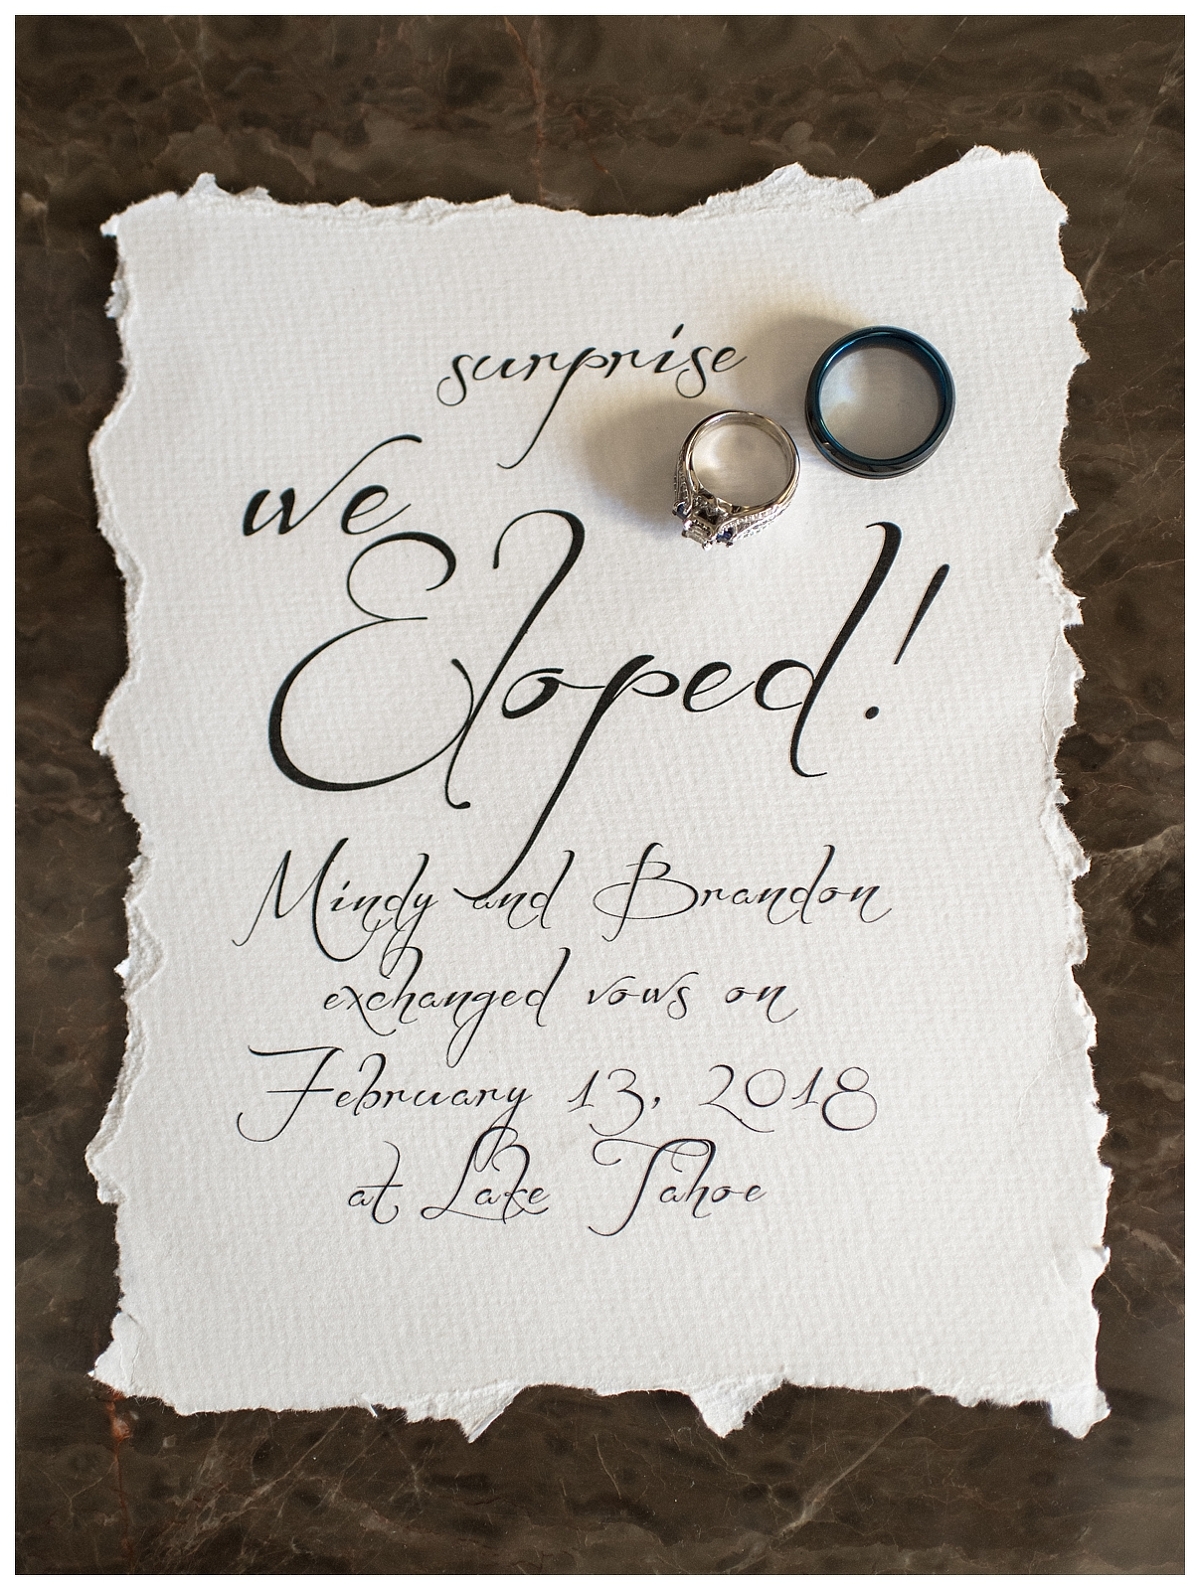 surprise
we
Eloped!
Mindy and Brandon
exchanged vows on
February 13, 2018
at Lake Tahoe